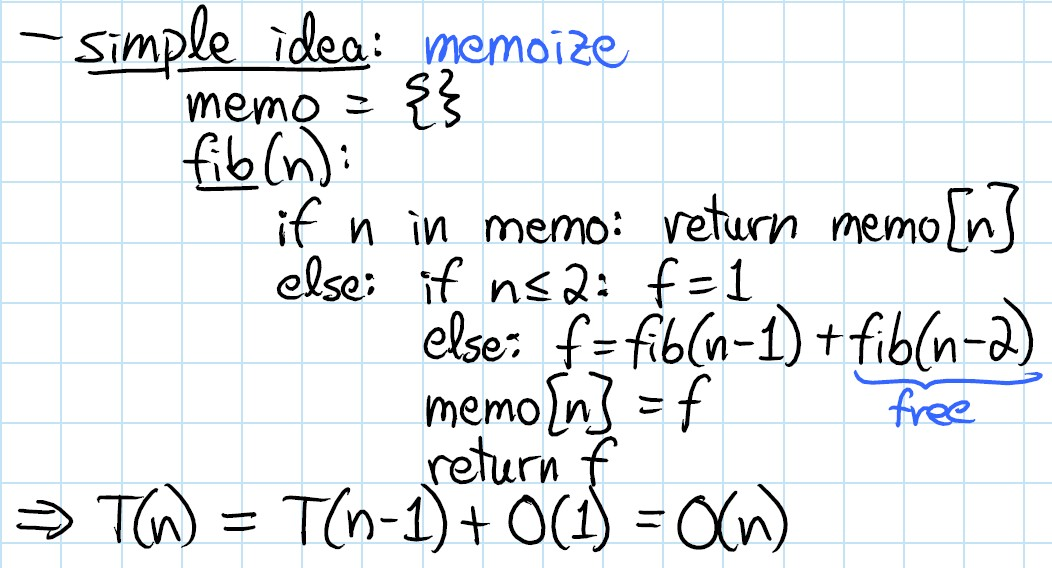 – simple idea: memoize
memo = {}
fib(n):
if n in memo: return memo[n]
else: if n≤2: f=1
else: f=fib(n-1)+fib(n-2)
free
memo[n]=f
return f
⇒ T(n) = T(n-1)+O(1)=O(n)